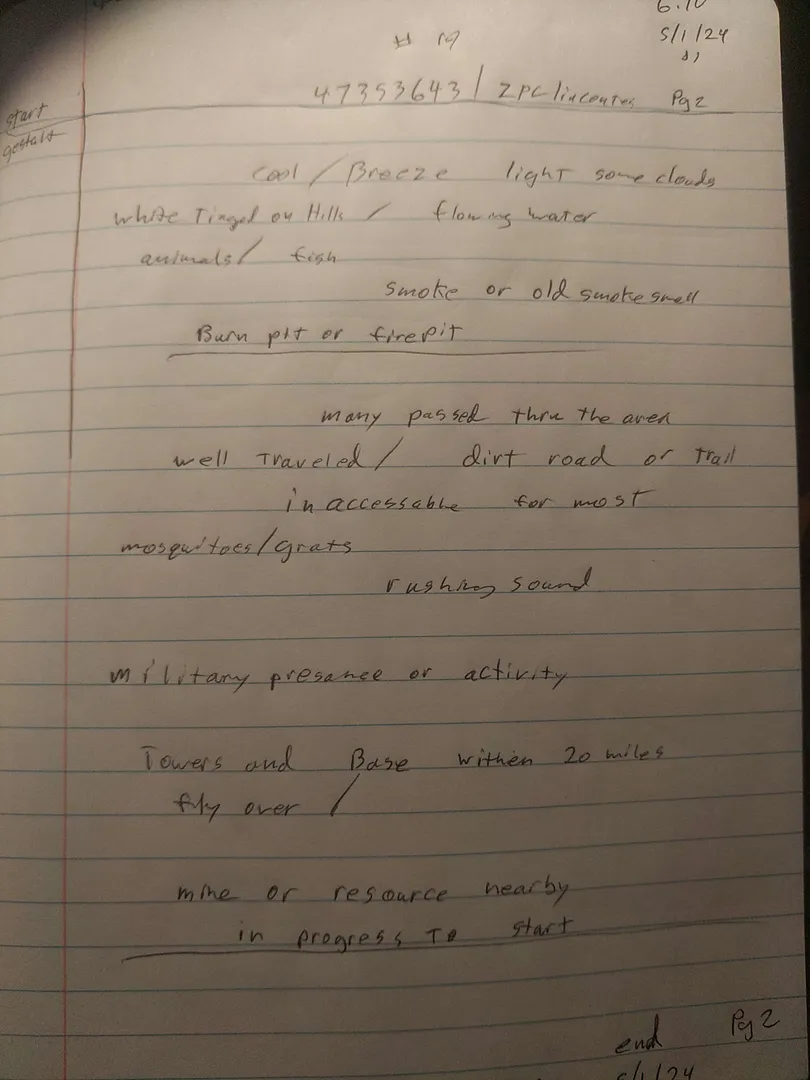 6:10
# 19
5/1/24
start
47353643 / ZPC Pg 2
gestalt
cool / Breeze light some clouds
white Tinged on Hills / flowing water
animals / fish
smoke or old smoke smell
Burn pit or firepit
many passed thru the area
well Traveled / dirt road or Trail
inaccessable for most
mosquitoes/gnats
rushing sound
military presance or activity
Towers and Base within 20 miles
fly over /
mine or resource nearby
in progress To start
end Pg 2
5/1/24